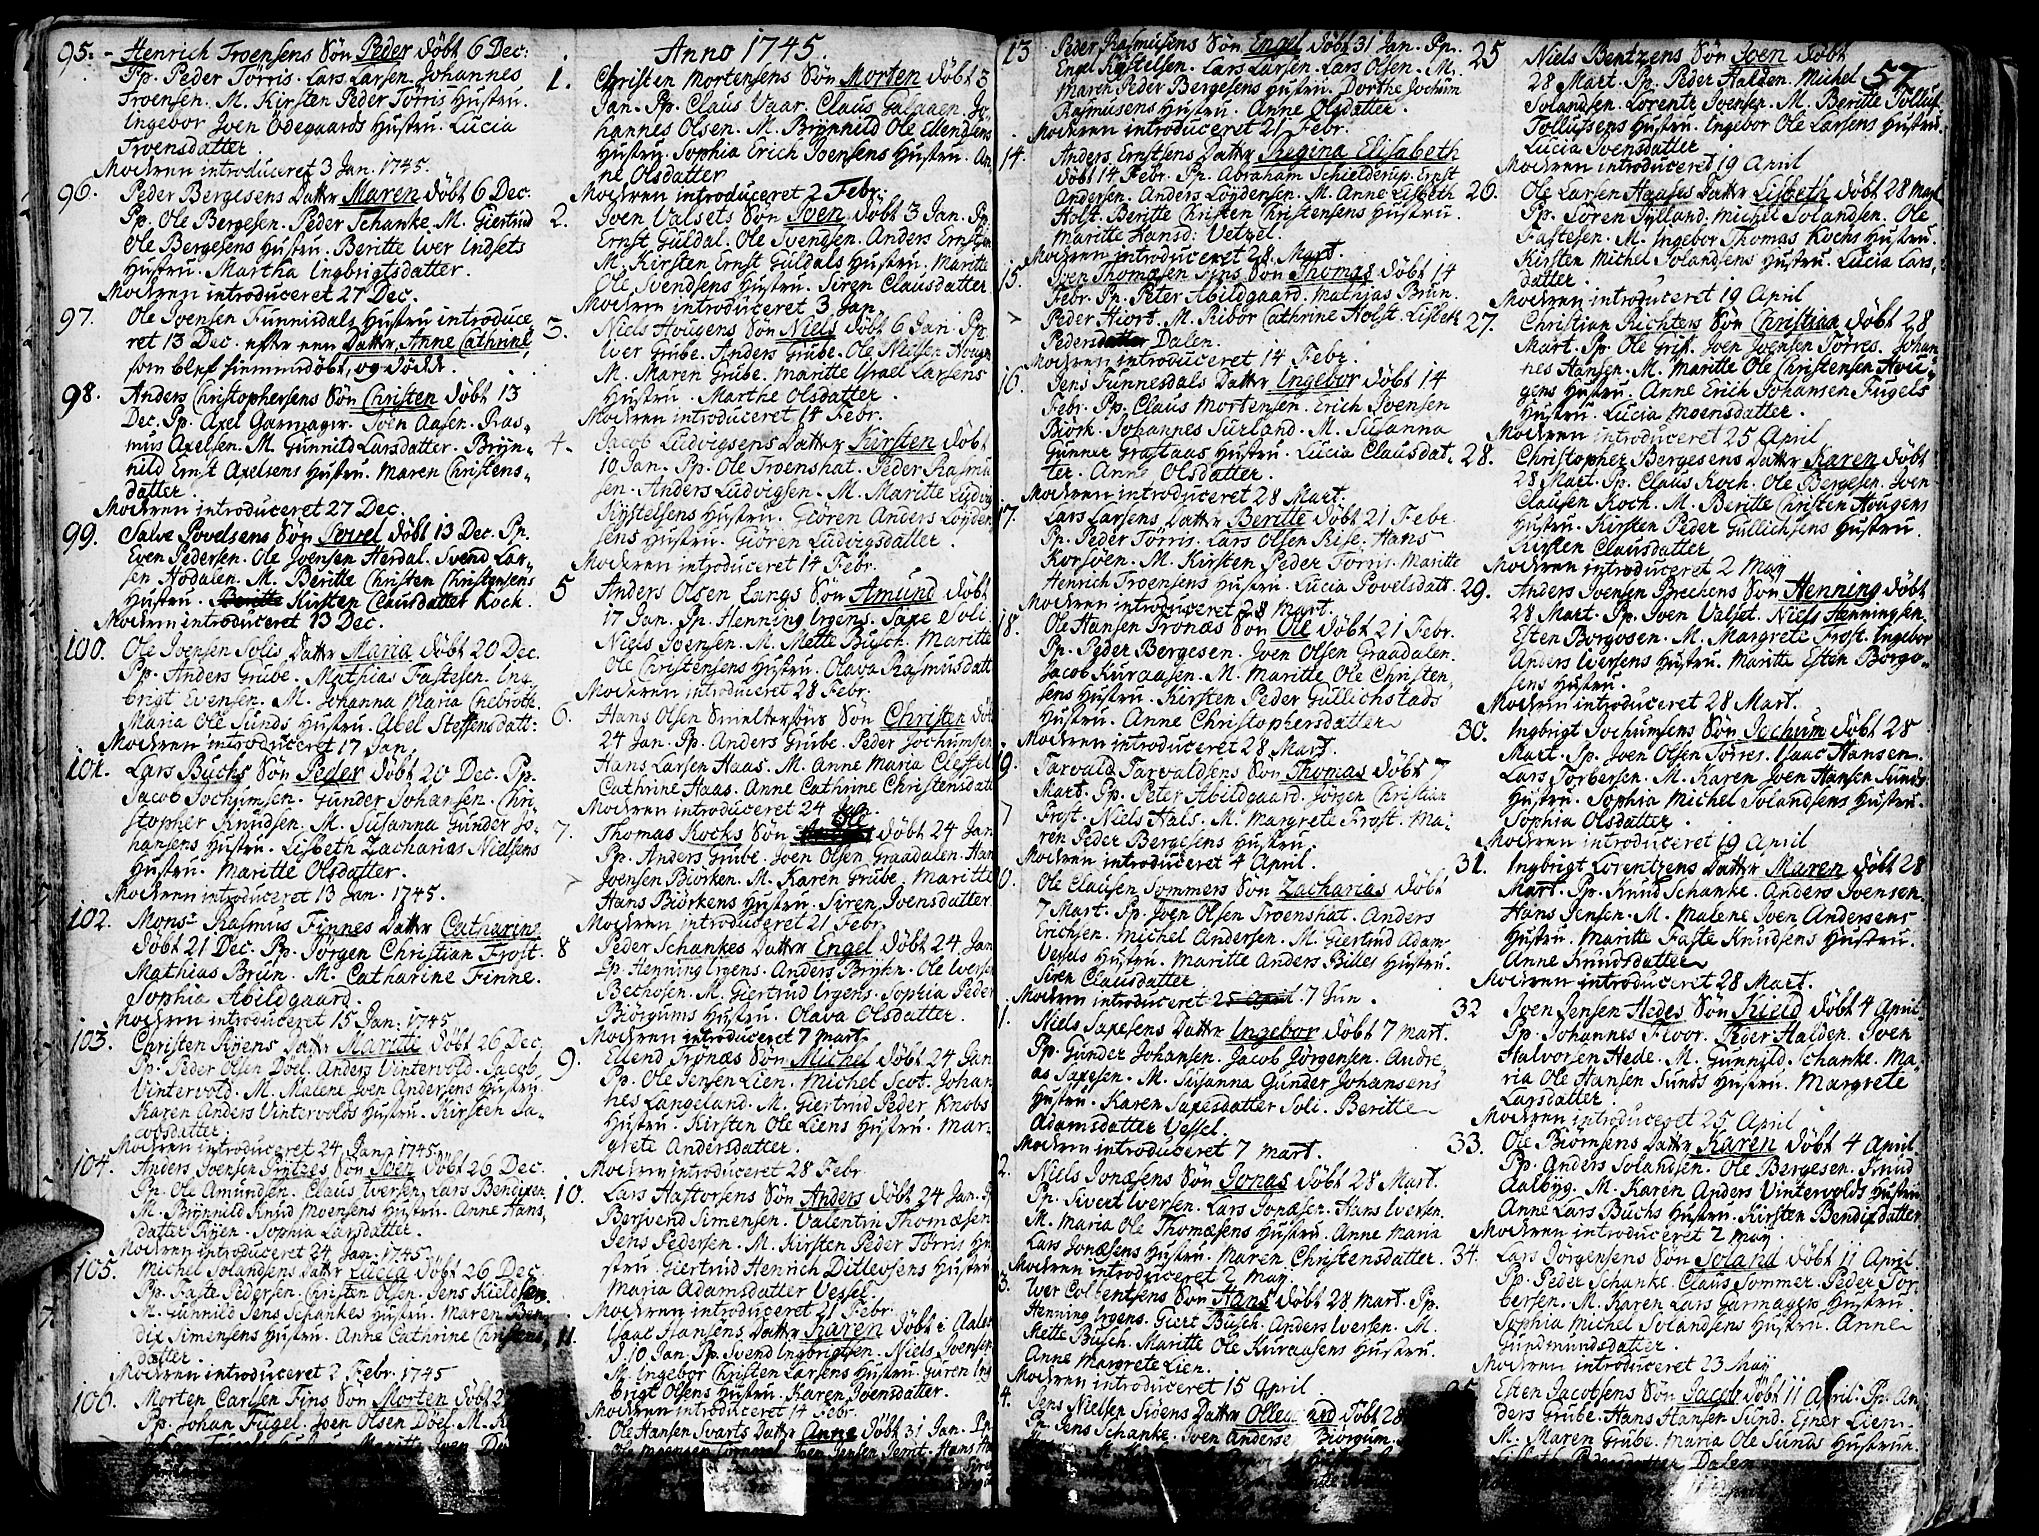 95. Henrich Troensens Sön Peder döbt 6 Dec:
Pp. Peder Törris. Lars Larsen. Johannes
Troensen. M. Kirsten Peder Törris Hustru.
Ingebor Joen Ödegaards Hustru. Lucia
Troensdatter.
Modren introduceret 3 Jan. 1745.
96. Peder Bergesens Datter Maren döbt 6 Dec.
Pp. Ole Bergesen. Peder Schanke. M. Giertrud
Ole Bergesens Hustru. Beritte Iver Indsets
Hustru. Martha Ingbrigtsdatter.
Modren introduceret 27 Dec.
97. Ole Joensen Funnisdals Hustru introduce
ret 13 Dec. efter een Datter Anne Cathrine,
som blef hiemmedöbt, og döde.
98. Anders Christophersens Sön Christen döbt 13
Dec. Pp. Axel Garmager. Joen Aasen. Ras-
mus Axelsen. M. Gunnild Larsdatter. Bryn-
hild Ernst Axelsens Hustru. Maren Christens-
datter.
Modren introduceret 27 Dec.
99. Salve Povelsens Sön Povel döbt 13 Dec. Pp.
Even Pedersen. Ole Joensen Herdal. Svend Lar-
sen Hodalen. M. Beritte Christen Christensens
Hustru. Kirsten Clausdatter Koch.
Modren introduceret 13 Dec.
100. Ole Joensen Solis Datter Maria döbt 20 Dec.
Pp. Anders Grube. Mathias Fastesen. Ing-
brigt Evensen. M. Johanna Maria Chebroth.
Maria Ole Sunds Hustru. Abel Steffensdatt:
Modren introduceret 17 Jan.
101. Lars Buchs Sön Peder döbt 20 Dec. Pp.
Jacob Jochumsen. Gunder Johansen. Chri-
stopher Knudsen. M. Susanna Gunder Jo-
hansens Hustru. Lisbeth Zacharias Nielsens
Hustru. Maritte Olsdatter.
Modren introduceret 13 Jan. 1745.
102. Monsr Rasmus Finnes Datter Catharina
döbt 21 Dec. Pp. Jörgen Christian Frost.
Mathias Brun. M. Catharine Finne.
Sophia Abildgaard.
Modren introduceret 15 Jan. 1745
103. Christen Ryens Datter Maritte döbt 26 Dec.
Pp. Peder Olsen Doel. Anders Vintervold. Jacob
Vintervold. M. Malene Joen Andersens Hustru.
Karen Anders Vintervolds Hustru. Kirsten Ja-
cobsdatter.
Modren introduceret 24 Jan. 1745.
104. Anders Joensen Prytzes Sön Joen döbt 26 Dec.
Pp. Ole Amundsen. Claus Iversen. Lars Bendixen
M. Brynnild Knud Moensens Hustru. Anne Hans-
datter Ryen. Sophia Larsdatter.
Modren introduceret 24 Jan. 1745
105. Michel Solandsens Datter Lucia döbt 26 Dec.
Pp. Faste Pedersen. Christen Olsen. Jens Kieldsen
M. Gunnild Jens Schankes Hustru. Maren Ben-
dix Simensens Hustru. Anne Cathrine Christens-
datter.
Modren introduceret 2 Febr. 1745
106. Morten Carlsen Fins Sön Morten döbt 2
Pp. Johan Fugel. Joen Olsen Doel. M.
Anno 1745.
1. Christen Mortensens Sön Morten döbt 3
Jan. Pp. Claus Vaar. Claus Galaaen. Jo-
hannes Olsen. M. Brynnild Ole Ellendsens
Hustru. Sophia Erich Joensens Hustru. An-
ne Olsdatter
Modren introduceret 2 Febr:
2. Joen Valsets Sön Joen döbt 3 Jan. Pp.
Ernst Guldal. Ole Svendsen. Anders Ernst
M. Kirsten Ernst Guldals Hustru. Maritte
Ole Svendsens Hustru. Siren Clausdatter
Modren introduceret 3 Jan.
3. Niels Hougens Sön Niels döbt 6 Jan. Pp.
Iver Grube. Anders Grube. Ole Nilsen Hougen
M. Maren Grube. Maritte Israel Larsens
Hustru. Marthe Olsdatter.
Modren introduceret 14 Febr.
4. Jacob Ludvigsens Datter Kirsten döbt
10 Jan. Pp. Ole Troenshat. Peder Rasmu
sen. Anders Ludvigsen. M. Maritte Ludvig
Kystelsens Hustru. Giören Anders Löyden
sens Hustru. Giören Ludvigsdatter.
Modren introduceret 14 Febr.
5 Anders Olsen Langs Sön Amund döbt
17 Jan. Pp. Henning Irgens. Saxe Soli
Niels Joensen. M. Mette Busch. Maritte
Ole Christensens Hustru. Olava Rasmusdatt
Modren introduceret 28 Febr.
6. Hans Olsen Smeltersbus Sön Christen döbt
24 Jan. Pp. Anders Grube. Peder Jochumsen
Hans Larsen Haas. M. Anne Maria
Cathrine Haas. Anne Cathrine Christensdatt
Modren introduceret 24 Jan.
7. Thomas Kochs Sön Ole döbt 24 Jan
Pp. Anders Grube. Joen Olsen Graadalen. Han
Joensen Biörken. M. Karen Grube. Maritte
Hans Biörkens Hustru. Siren Joensdatter
Modren introduceret 21 Febr.
8 Peder Schankes Datter Engel döbt 24 Jan
Pp. Henning Irgens. Anders Brysen. Ole Iversen
Bethosen. M. Giertrud Irgens. Sophia Peder
Biörgums Hustru. Olava Olsdatter.
Modren introduceret 7 Mart.
9. Ellend Tronæs Sön Michel döbt 24 Jan
Pp. Ole Jensen Lien. Michel Scot. Johan
nes Langeland. M. Giertrud Peder Knobs
Hustru. Kirsten Ole Liens Hustru. Mar-
grete Andersdatter.
Modren introduceret 28 Febr.
10. Lars Hattorsens Sön Anders döbt 24 Jan. P
Bersvend Simensen. Valentin Thomæsen
Jens Pedersen. M. Kirsten Peder Törris Hu
stru. Giertrud Henrich Ditlevsens Hustru
Maria Adamsdatter Vessel.
Modren introduceret 21 Febr.
11. Isaac Hansens Datter Karen döbt i Aalen
d. 10 Jan. Pp. Svend Ingbrigtsen. Niels Joensen
M. Ingebor Christen Larsens Hustru. Guren Ing
brigt Olsens Hustru. Karen Joensdatter.
Modren introduceret 14 Febr.
Ole Hansen Svarts Datter Anne döbt 31 Jan. Pp
13 Peder Rasmusens Sön Engel döbt 31 Jan. Pp.
Engel Kystelsen. Lars Larsen. Lars Olsen. M.
Maren Peder Bergesens Hustru. Dorthe Jochum
Rasmusens Hustru. Anne Olsdatter.
Modren introduceret 21 Febr.
14. Anders Ernstsens Datter Regina Elisabeth
döbt 14 Febr. Pp. Abraham Schielderup. Ernst
Andersen. Anders Löydensen. M. Anne Lisbeth
Holst. Beritte Christen Christensens Hustru.
Maritte Hansd: Vetzel.
Modren introduceret 28 Mart.
15. Joen Thomæsen Fins Sön Thomas döbt 14
Febr. Pp. Peter Abildgaard. Mathias Brun.
Peder Hiort. M. Ribor Cathrine Holst. Lisbeth
Pedersdatter Dalen.
Modren introduceret 14 Febr.
16. Jens Funnesdals Datter Ingebor döbt 14
Febr. Pp. Claus Mortensen. Erich Joensen
Biörk. Johannes Surland. M. Susanna
Gunner Grastaas Hustru. Lucia Clausdat-
ter. Anne Olsdatter.
Modren introduceret 28 Mart.
17. Lars Larsens Datter Beritte döbt 21 Febr.
Pp. Peder Törris. Lars Olsen Rise. Hans
Korsöen. M. Kirsten Peder Törris. Maritte
Henrich Troensens Hustru. Lucia Povelsdatt.
Modren introduceret 28 Mart.
18. Ole Hansen Tronæs Sön Ole döbt 21 Febr.
Pp. Peder Bergesen. Joen Olsen Graadalen.
Jacob Kuraasen. M. Maritte Ole Christen-
sens Hustru. Kirsten Peder Gullichstads
Hustru. Anne Christophersdatter
Modren introduceret 28 Mart.
19. Tarvald Tarvaldsens Sön Thomas döbt 7
Mart. Pp. Peter Abildgaard. Jörgen Christian
Frost. Niels Hals. M. Margrete Frost. Ma-
ren Peder Bergesens Hustru.
Modren introduceret 4 April.
0. Ole Clausen Sommers Sön Zacharias döbt
7 Mart. Pp. Joen Olsen Troenshat. Anders
Erichsen. Michel Andersen. M. Giertrud Adam
Vessels Hustru. Maritte Anders Billes Hustru.
Siren Clausdatter
Modren introduceret 25 April 7 Jun.
1. Niels Saxesens Datter Ingebor döbt 7 Mart.
Pp. Gunder Johansen. Jacob Jörgensen. Andre
as Saxesen. M. Susanna Gunder Johansens
Hustru. Karen Saxesdatter Soli. Beritte
Adamsdatter Vessel.
Modren introduceret 7 Mart.
2. Niels Jonæsens Sön Jonas döbt 28 Mart.
Pp. Sivert Iversen. Lars Jonæsen. Hans Iversen.
M. Maria Ole Thomæsens Hustru. Anne Maria
Lars Jonæsens Hustru. Maren Christensdatter.
Modren introduceret 2 May.
3. Iver Colbentsens Sön Hans döbt 28 Mart. Pp.
Henning Irgens. Giert Busch. Anders Iversen. M.
Mette Busch. Maritte Ole Kuraasens Hustru.
Anne Margrete Lien.
Modren introduceret 15 April.
4. Jens Nielsen Siöens Datter Olleg döbt 28
Pp. Jens Schanke. Joen Anderse Biörgum.
57
25 Niels Bentzens Sön Joen döbt
28 Mart. Pp. Peder Halden. Michel
Solandsen. Lorentz Joensen. M. Beritte Tolluf
Tollufsens Hustru. Ingebor Ole Larsens Hustru.
Lucia Joensdatter.
Modren introduceret 19 April
26. Ole Larsen Haases Datter Lisbeth döbt 28 Mart
Pp. Sören Sylland. Michel Solandsen. Ole
Fastesen. M. Ingebor Thomas Kochs Hustru.
Kirsten Michel Solandsens Hustru. Lucia Lars-
datter.
Modren introduceret 19 April
27. Christian Richters Sön Christian döbt 28
Mart. Pp. Ole Grist. Joen Joensen Törres. Johan
nes Hansen. M. Maritte Ole Christensen Hou-
gens Hustru. Anne Erich Johansen Fugels
Hustru. Lucia Moensdatter.
Modren introduceret 25 April
28. Christopher Bergesens Datter Karen döbt
28 Mart. Pp. Claus Koch. Ole Bergesen. Joen
Clausen Koch. M. Beritte Christen Hougens
Hustru. Kirsten Peder Gullichsens Hustru.
Kirsten Clausdatter
Modren introduceret 2 May
29. Anders Joensen Sprechens Sön Henning döbt
28 Mart. Pp. Joen Valset. Niels Henningsen.
Esten Borgosen. M. Margrete Frost. Ingebor
Anders Iversens Hustru. Maritte Esten Borgo-
sens Hustru.
Modren introduceret 28 Mart.
30. Ingbrigt Jochumsens Sön Jochum döbt 28
Mart. Pp. Joen Olsen Törres. Isaac Hansen.
Lars Torbersen. M. Karen Joen Hansen Sunds
Hustru. Sophia Michel Solandsens Hustru.
Sophia Olsdatter.
Modren introduceret 19 April
31. Ingbrigt Lorentzens Datter Maren döbt 28
Mart. Pp. Knud Schanke. Anders Joensen.
Hans Jensen. M. Malene Joen Andersens
Hustru. Maritte Faste Knudsens Hustru.
Anne Knudsdatter
Modren introduceret 28 Mart.
32 Joen Jensen Hedes Sön Kield döbt 4 April.
Pp. Johannes Floor. Peder Halden. Joen
Halvorsen Hede. M. Gunnild Schanke. Ma-
ria Ole Hansen Sunds Hustru. Margrete
Larsdatter.
Modren introduceret 25 April
33. Ole Biörnsens Datter Karen döbt 4 April.
Pp. Anders Solandsen. Ole Bergesen. Knud
Aalbyg. M. Karen Anders Vintervolds Hustru
Anne Lars Buchs Hustru. Kirsten Bendixdatter
Modren introduceret 2 May.
34. Lars Jörgensens Sön Soland döbt 11 April.
Pp. Peder Schanke. Claus Sommer. Peder Tor
bersen. M. Karen Lars Garmagers Hustru.
Sophia Michel Solandsens Hustru. Anne
Gundmundsdatter.
Modren introduceret 23 May
Esten Jacobsens Sön Jacob döbt 11 April. Pp. An
ders Grube. Hans Hansen Sund. Ener Lien.
M. Maren Grube. Maria Ole Sunds Hustrue.
Lisbeth Pedersdatter Dalen